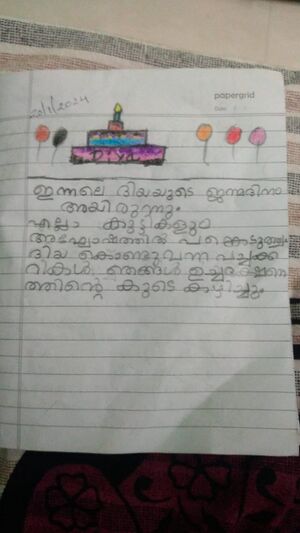 papergrid
Date: / /
20/1/2024
DIYA
ഇന്നലെ ദിയയുടെ ജന്മദിനാ
അയിരുന്നു.
എല്ലാ കുട്ടികളും
ആഘോഷത്തിൽ പങ്കെടുത്തു.
ദിയ കൊണ്ടുവന്ന പച്ചക്ക
റികൾ ഞങ്ങൾ ഉച്ചഭക്ഷണ
ത്തിന്റെ കൂടെ കഴിച്ചു.